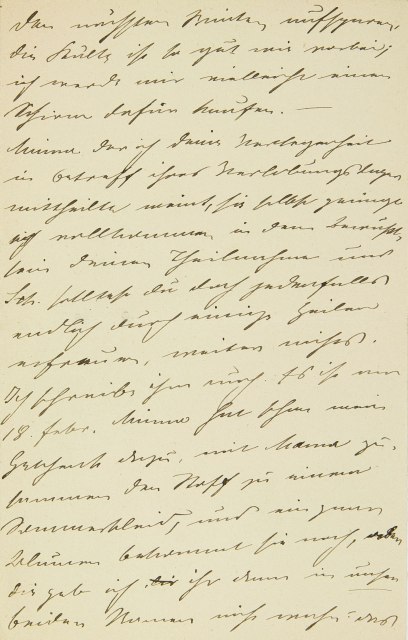 den nächsten Winter aufsparen,
die Kälte ist so gut wie vorbei;
ich werde mir vielleicht einen
Schirm dafür kaufen. —
Minna der ich deine Verlegenheit
in betreff ihres Verlobungstages
mittheilte meint, ihr selbst genüge
vollkommen in dem Bewußt-
sein deiner Theilnahme und
Sch. solltest du doch jedenfalls
endlich durch einige Zeilen
erfreuen, weiter nichts.
Ich schreibe ihm auch. Es ist am
18. Febr. Minna hat schon mein
Geschenk dazu, mit Mama zu-
sammen den Stoff zu einem
Sommerkleid, und ein paar
Blumen bekommt sie noch, 
die geb ich ihr dann in unser
beiden Namen nicht wahr? das